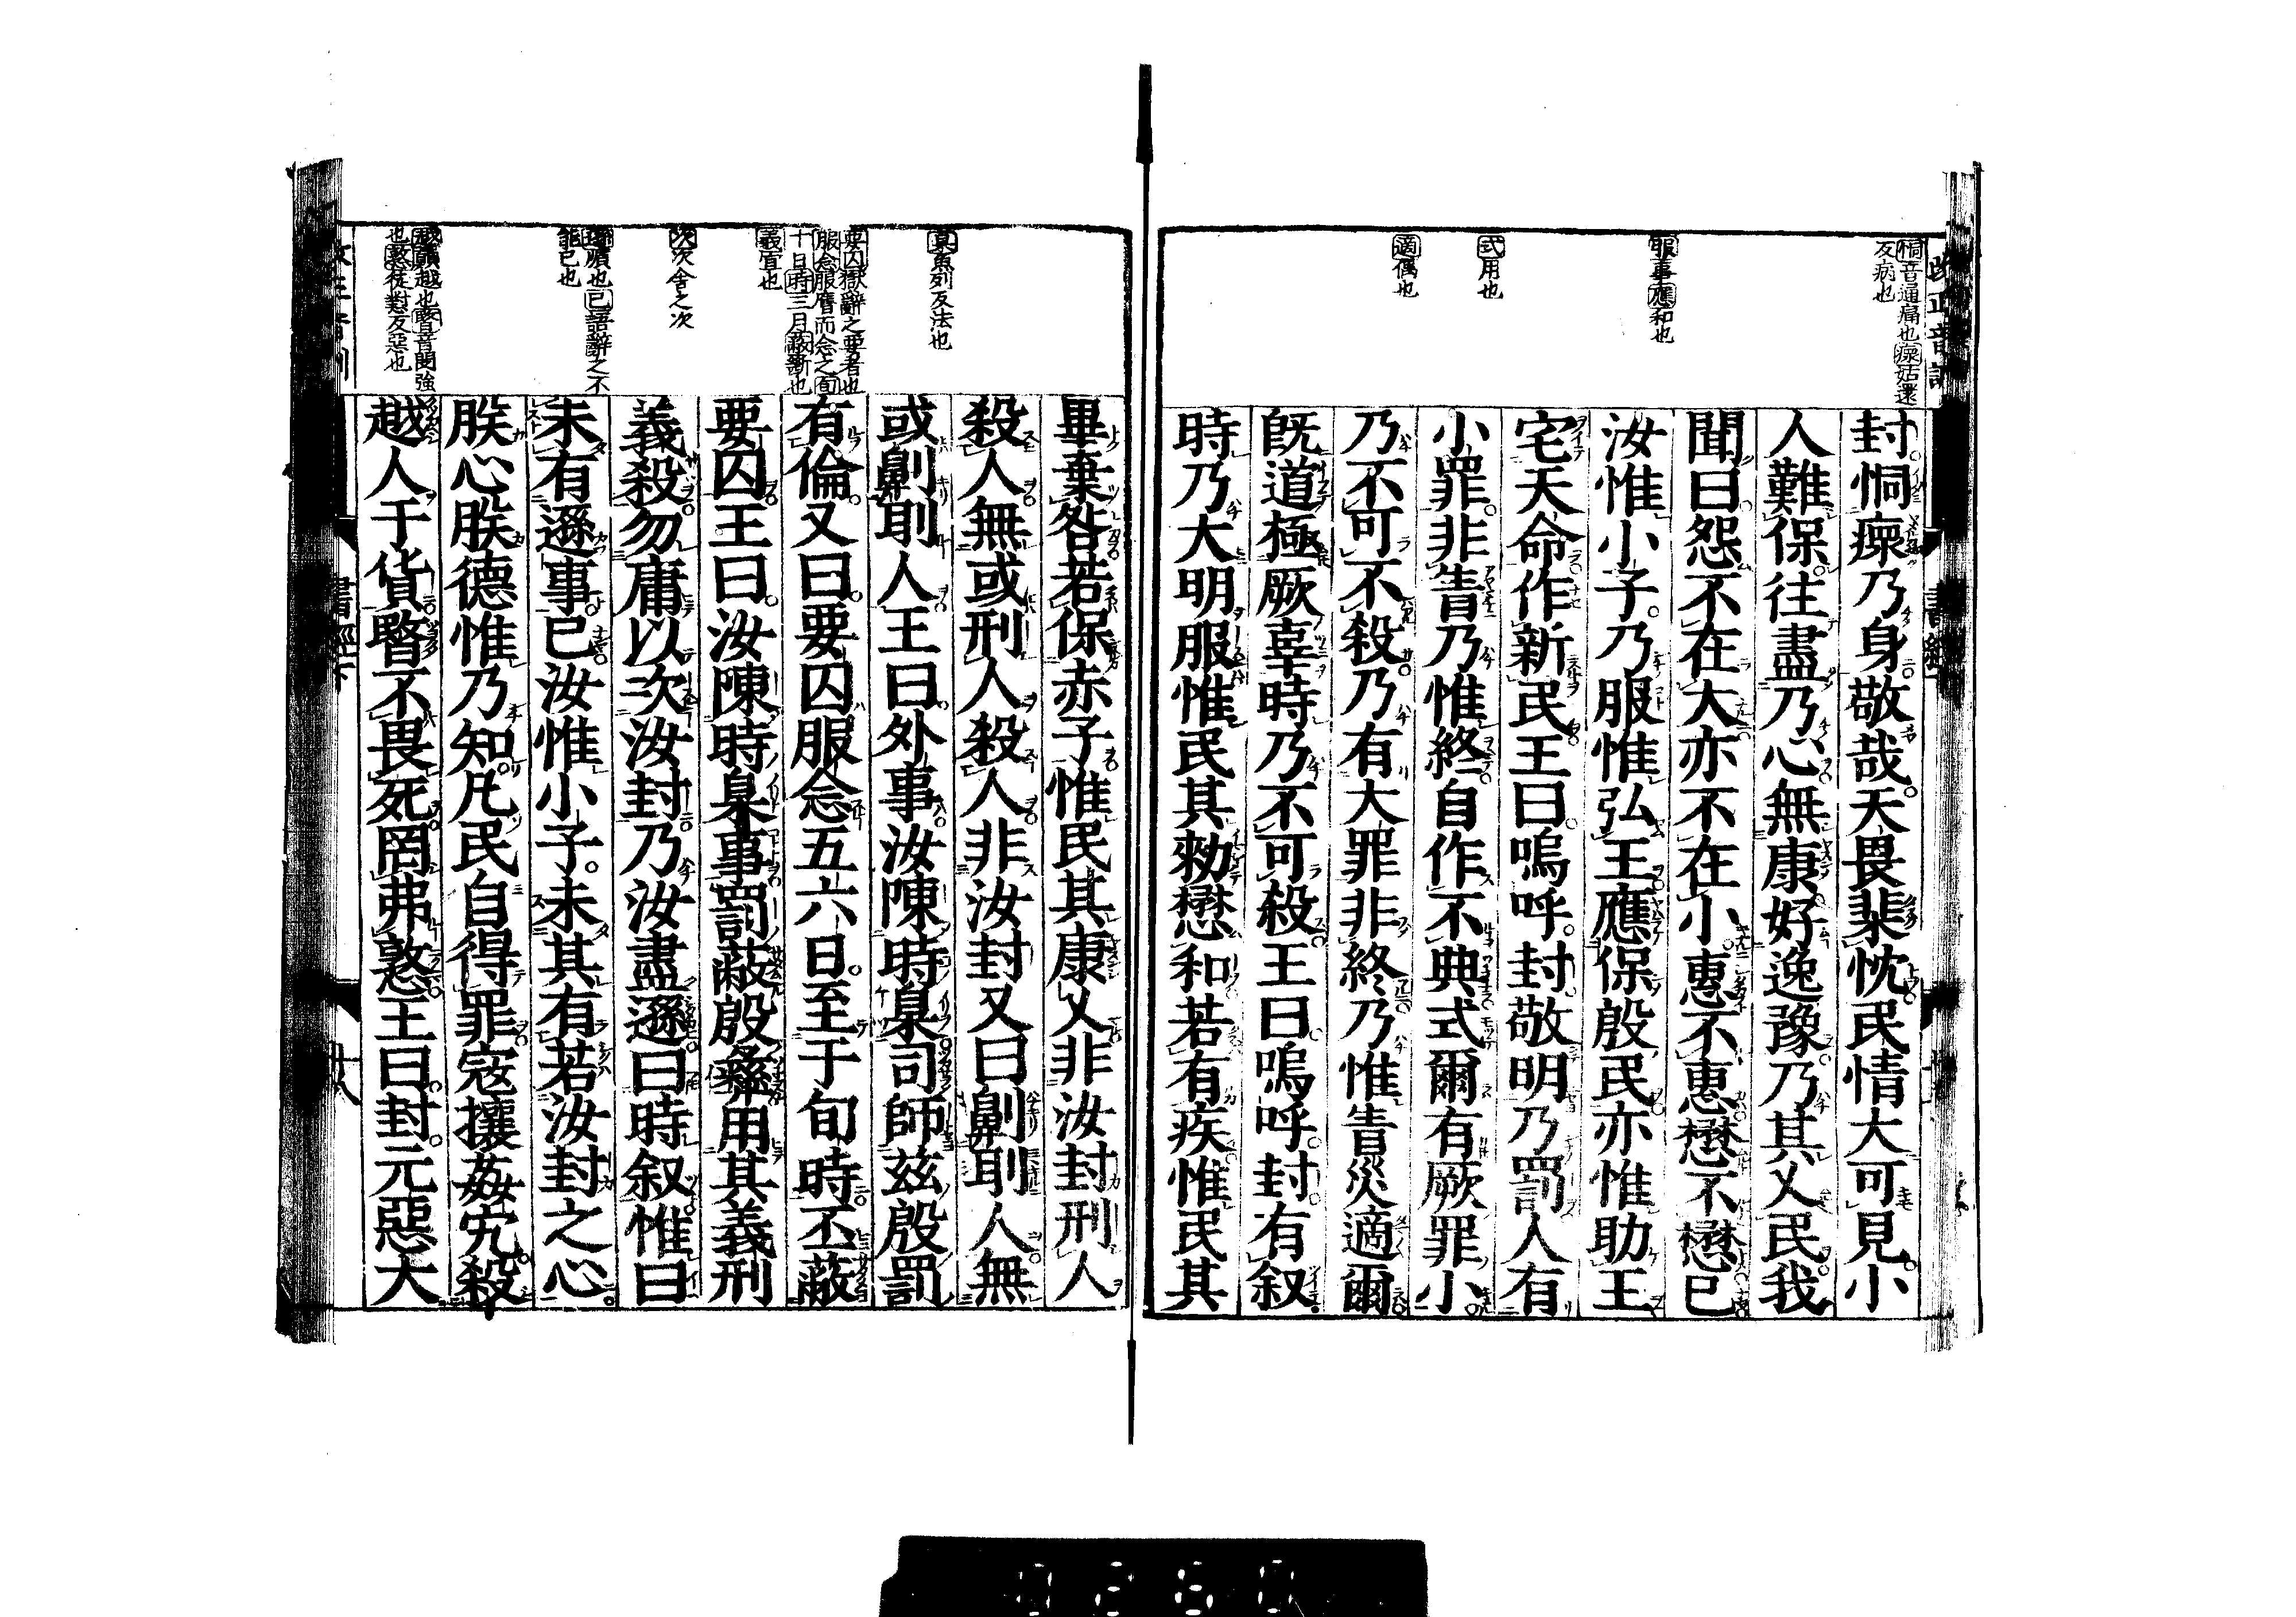 恫音通痛也瘝姑還
反病也
服事應和也
式用也
適偶也
封恫瘝乃身敬哉天畏棐忱民情大可見小
人難保往盡乃心無康好逸豫乃其乂民我
聞曰怨不在大亦不在小惠不惠懋不懋已
汝惟小子乃服惟弘王應保殷民亦惟助王
宅天命作新民王曰嗚呼封敬明乃罰人有
小罪非眚乃惟終自作不典式爾有厥罪小
乃不可不殺乃有大罪非終乃惟眚災適爾
既道極厥辜時乃不可殺王曰嗚呼封有叙
時乃大明服惟民其勑懋和若有疾惟民其
臬魚列反法也
要囚獄辭之要者也
服念服膺而念之旬
十日時三月蔽斷也
義宜也
次次舍之次
遜順也已語辭之不
能已也
越顛越也暋音閔強
也憝徒對反惡也
畢棄咎若保赤子惟民其康乂非汝封刑人
殺人無或刑人殺人非汝封又曰劓刵人無
或劓刵人王曰外事汝陳時臬司師茲殷罰
有倫又曰要囚服念五六日至于旬時丕蔽
要囚王曰汝陳時臬事罰蔽殷彝用其義刑
義殺勿庸以次汝封乃汝盡遜曰時叙惟曰
未有遜事已汝惟小子未其有若汝封之心
朕心朕德惟乃知凡民自得罪寇攘姦宄殺
越人于貨暋不畏死罔弗憝王曰封元惡大
書經下